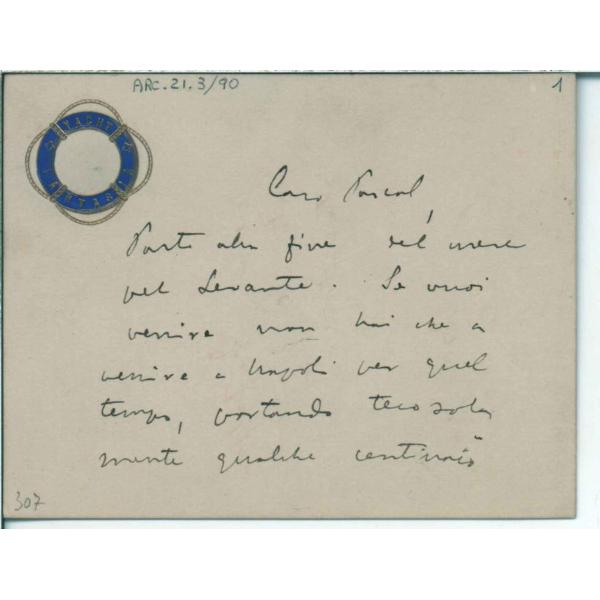 ARC. 21. 3/90
1
YACHT
FANTASIA
Caro Pascal,
Parto alla fine del mese
pel Levante. Se vuoi
venire non hai che a
venire a Napoli per quel
tempo, portando teco sola
mente qualche centinaio
307